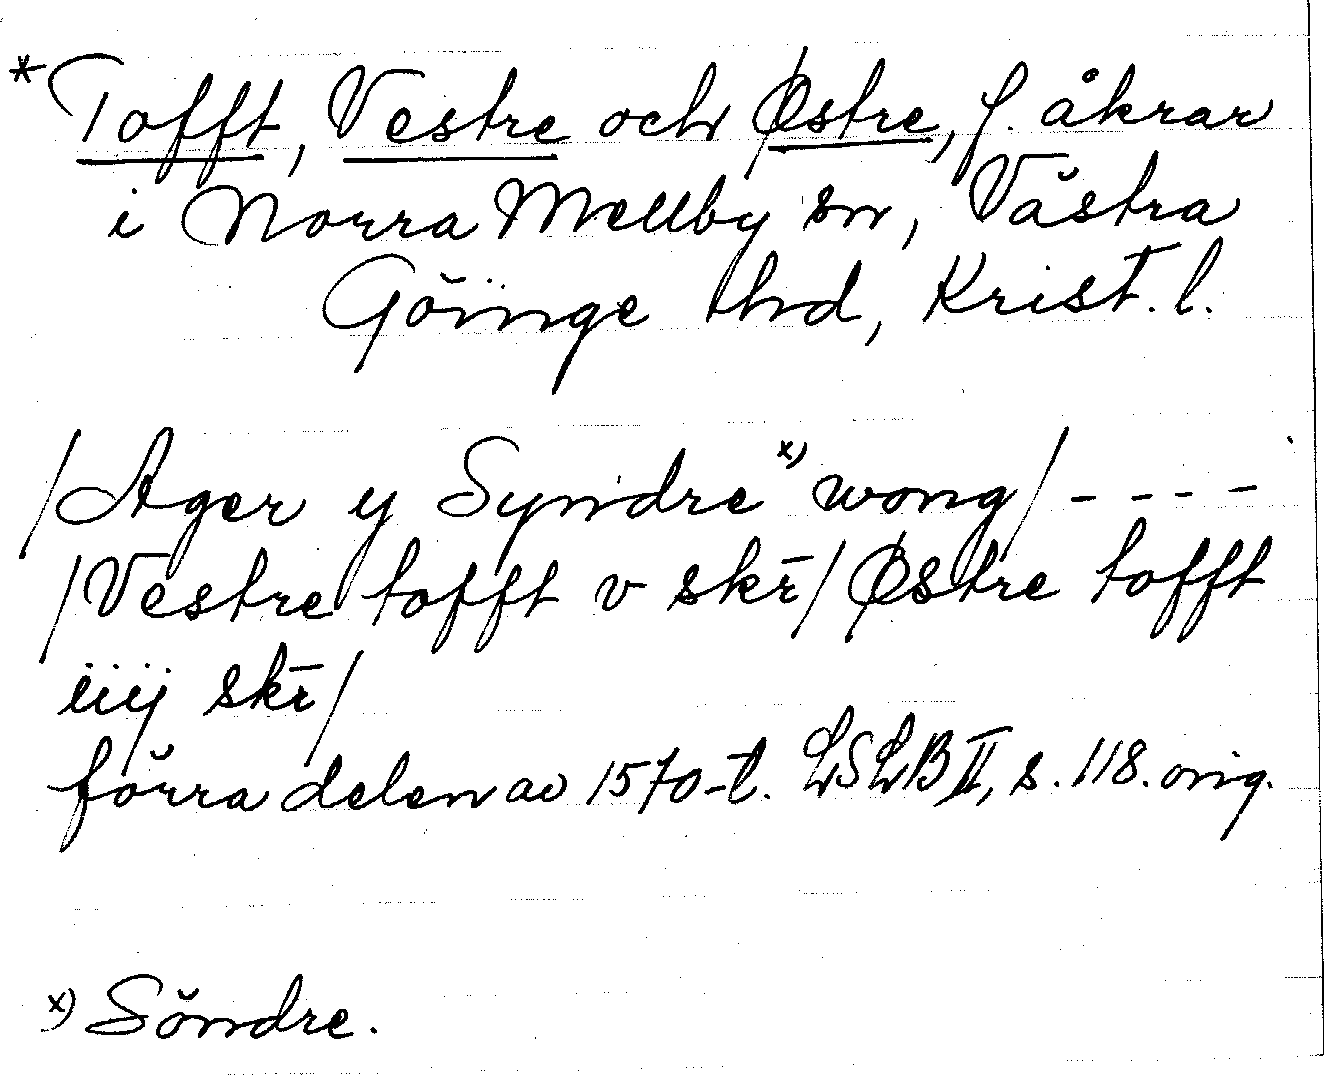 * Tofft, Vestre och Østre, f. åkrar
i Norra Mellby sn, Västra
Göinge hd, Krist. l.
/Ager y Syndre x) wong/ - - - -
/Vestre tofft v skr̄/ Østre tofft
iiij skr̄/
förra delen av 1570-t. LSLB II, s. 118. orig.
x) Söndre.